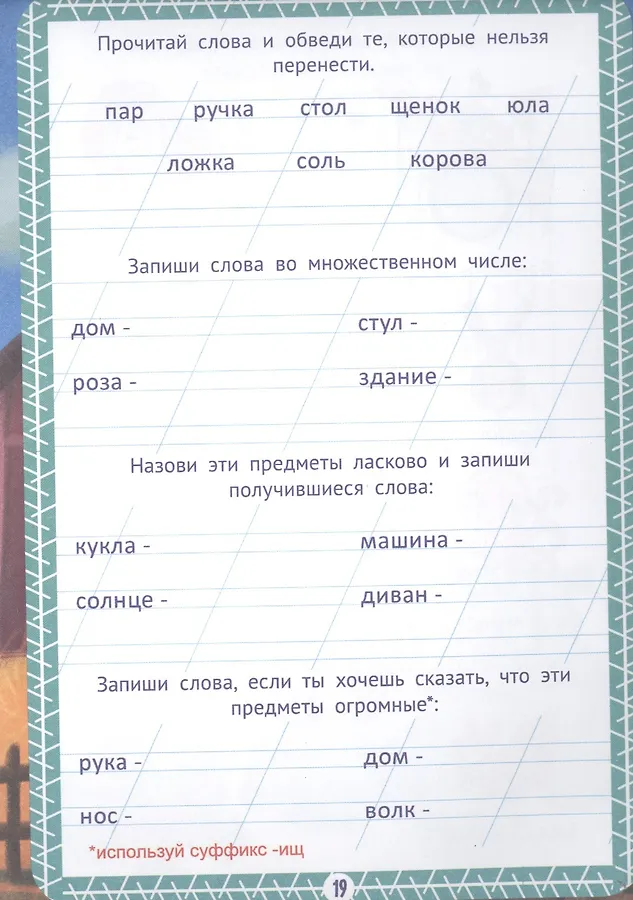 Прочитай слова и обведи те, которые нельзя
перенести.
пар ручка стол щенок юла
ложка соль корова
Запиши слова во множественном числе:
дом - стул -
роза - здание -
Назови эти предметы ласково и запиши
получившиеся слова:
кукла - машина -
солнце - диван -
Запиши слова, если ты хочешь сказать, что эти
предметы огромные*:
рука - дом -
нос - волк -
*используй суффикс -ищ
19